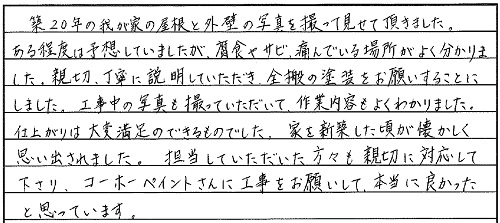 築20年の我が家の屋根と外壁の写真を撮って見せて頂きました。
ある程度は予想していましたが、腐食やサビ、痛んでいる場所がよく分かりま
した。親切、丁寧に説明していただき、全搬の塗装をお願いすることに
しました。工事中の写真も撮っていただいて、作業内容もよくわかりました。
仕上がりは大変満足のできるものでした。家を新築した頃が懐かしく
思い出されました。担当していただいた方々も親切に対応して
下さり、コーホーペイントさんに工事をお願いして、本当に良かった
と思っています。